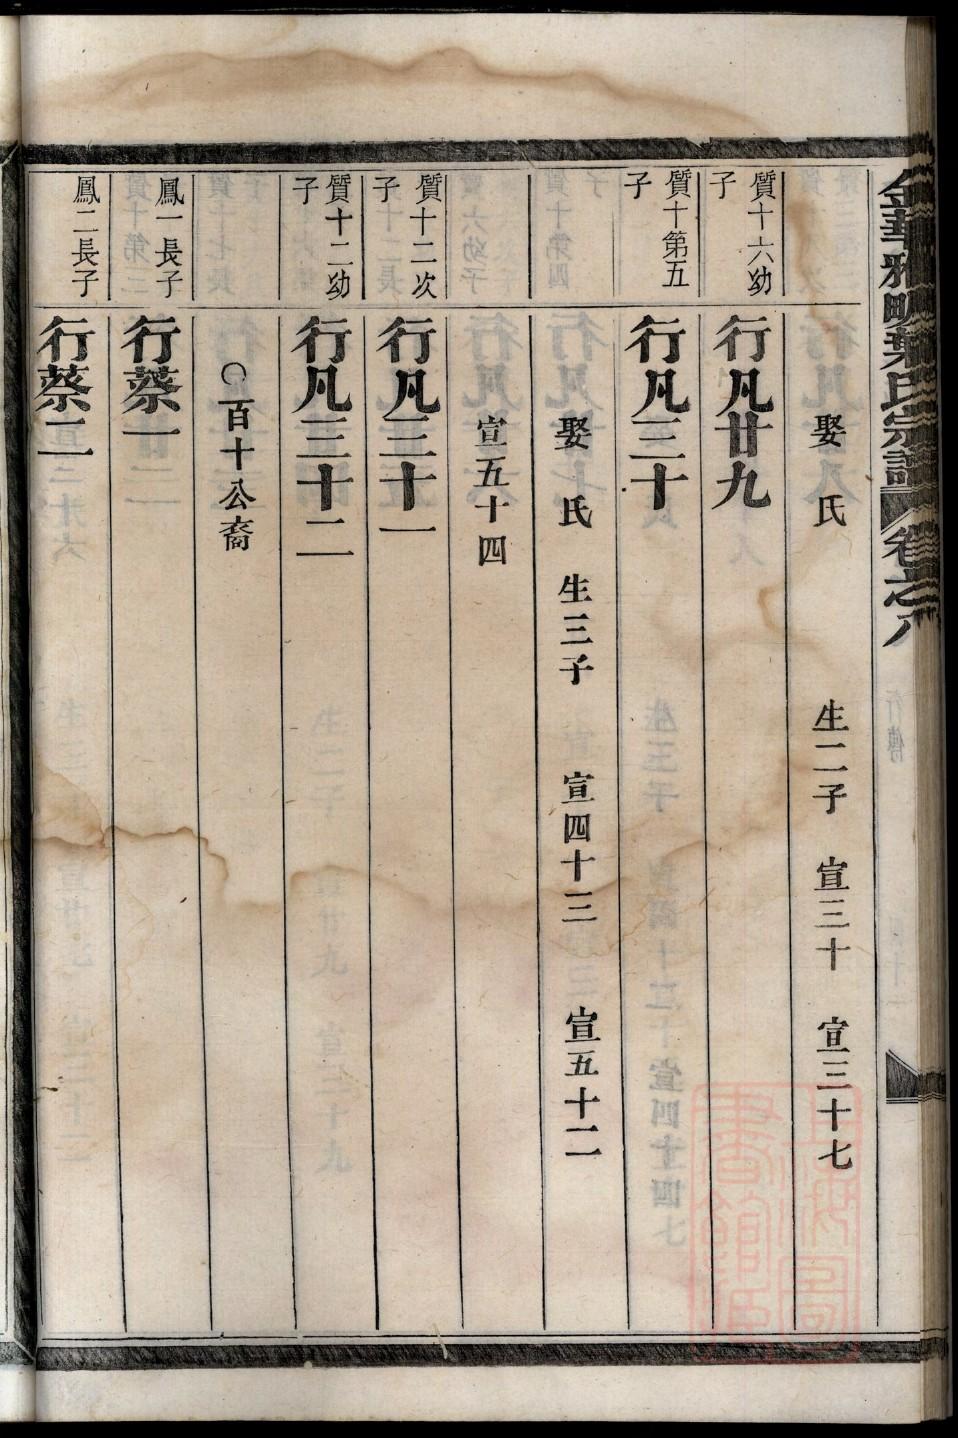 金華雅畈葉氏宗譜 卷之八
行傳
娶 氏 生二子 宣三十 宣三十七
質十六幼子
行凡廿九
質十第五子
行凡三十
娶 氏 生三子 宣四十三 宣五十二
宣五十四
質十二次子
行凡三十一
質十二幼子
行凡三十二
○百十公裔
鳳一長子
行蔡一
鳳二長子
行蔡二
上海圖書館藏